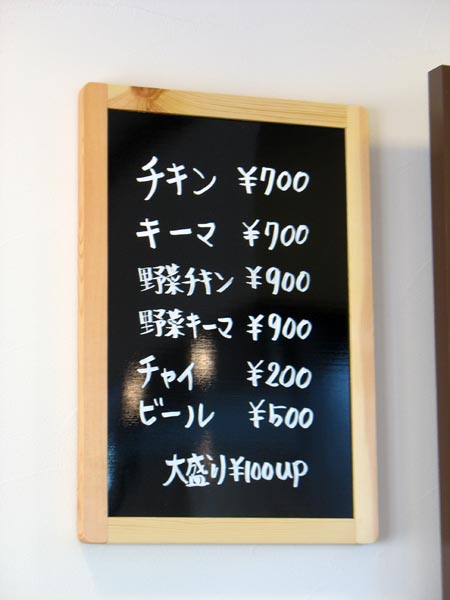 チキン ¥700
キーマ ¥700
野菜チキン ¥900
野菜キーマ ¥900
チャイ ¥200
ビール ¥500
大盛り¥100up